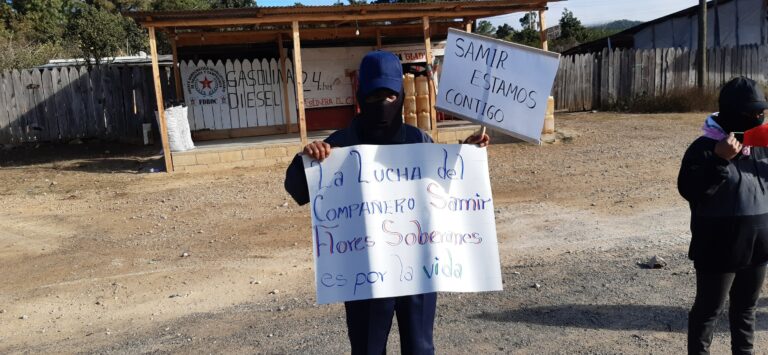 SAMIR
ESTAMOS
CONTIGO
La Lucha del
Compañero Samir
Flores Soberanes
es por la vida
GASOLINA
DIESEL
24